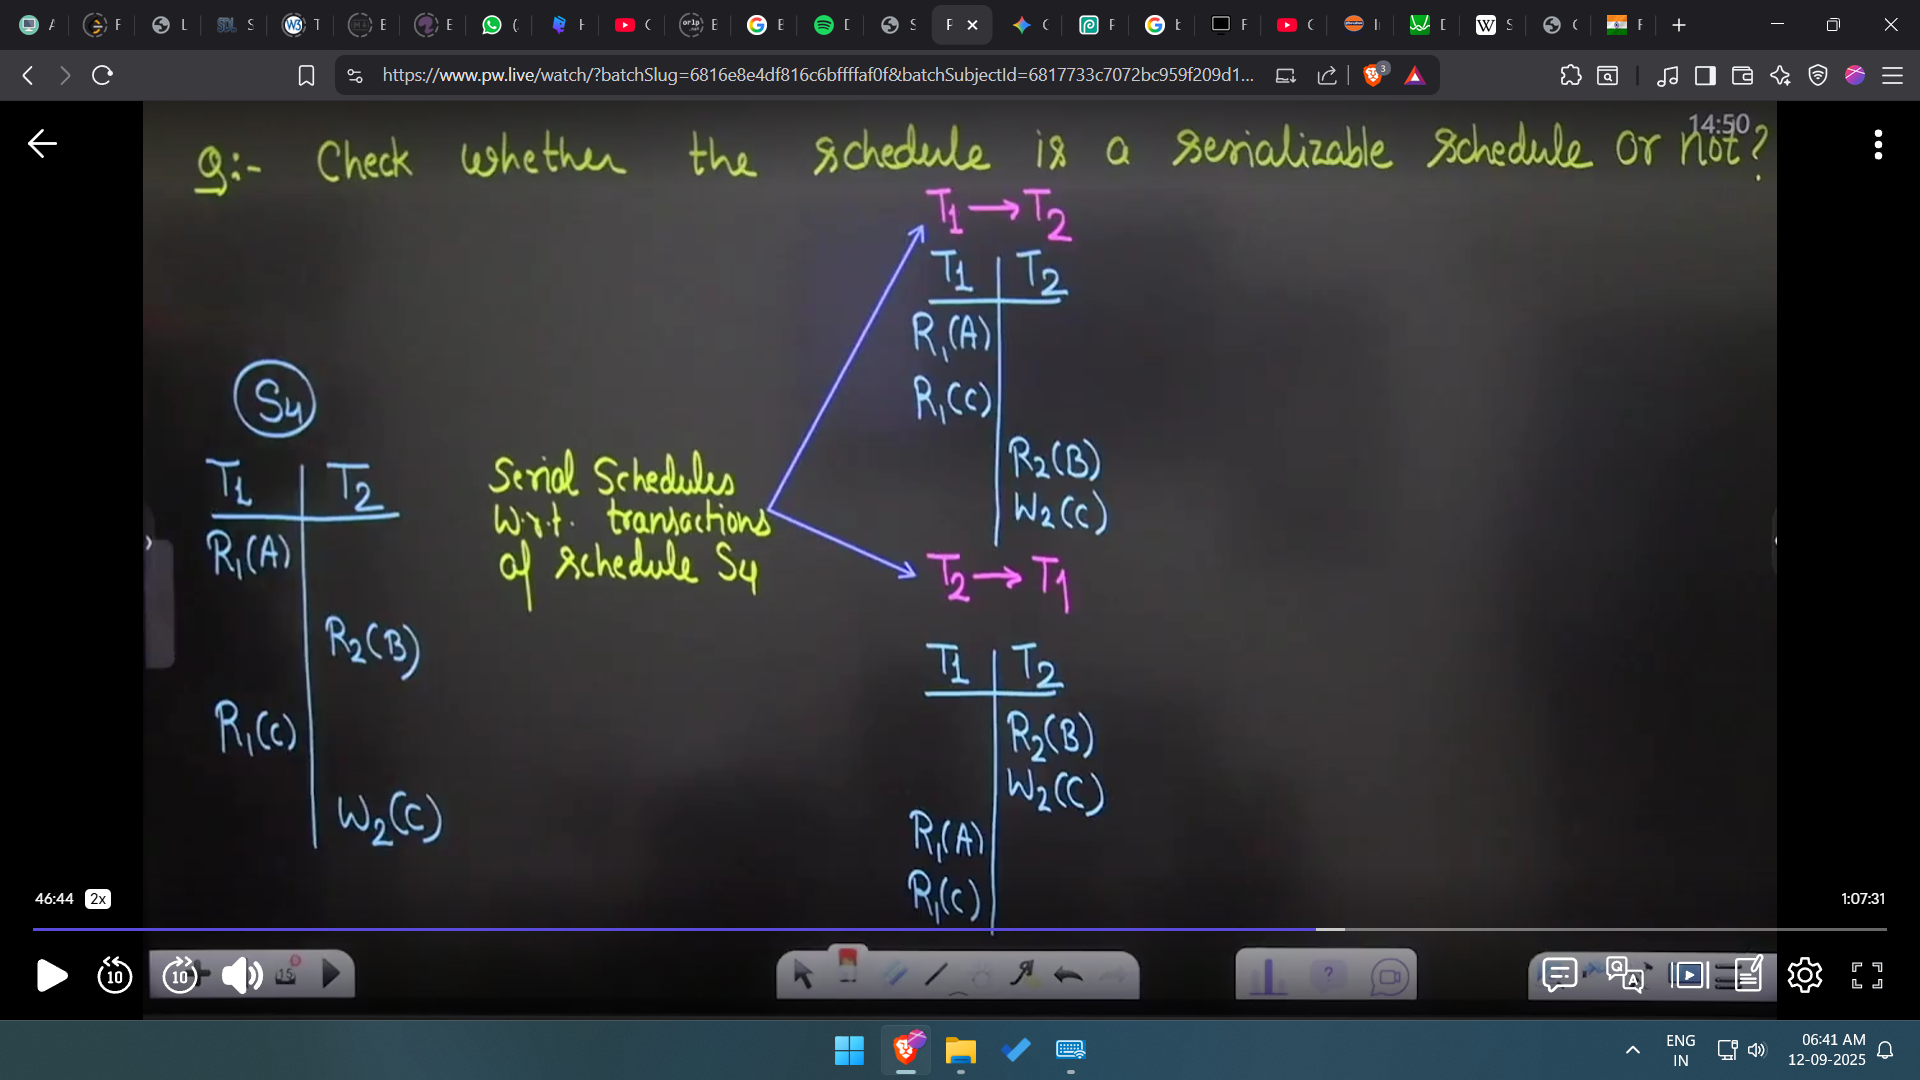 https://www.pw.live/watch/?batchSlug=6816e8e4df816c6bffffaf0f&batchSubjectId=6817733c7072bc959f209d1...
3
14:50
Q:- Check whether the schedule is a serializable schedule or not?
T1 → T2
T1 T2
R1(A)
R1(C)
R2(B)
W2(C)
S4
T1 T2
R1(A)
R2(B)
R1(C)
W2(C)
Serial Schedules
w.r.t. transactions
of schedule S4
T2 → T1
T1 T2
R2(B)
W2(C)
R1(A)
R1(C)
46:44 2x
1:07:31
10 10
15
ENG
IN
06:41 AM
12-09-2025